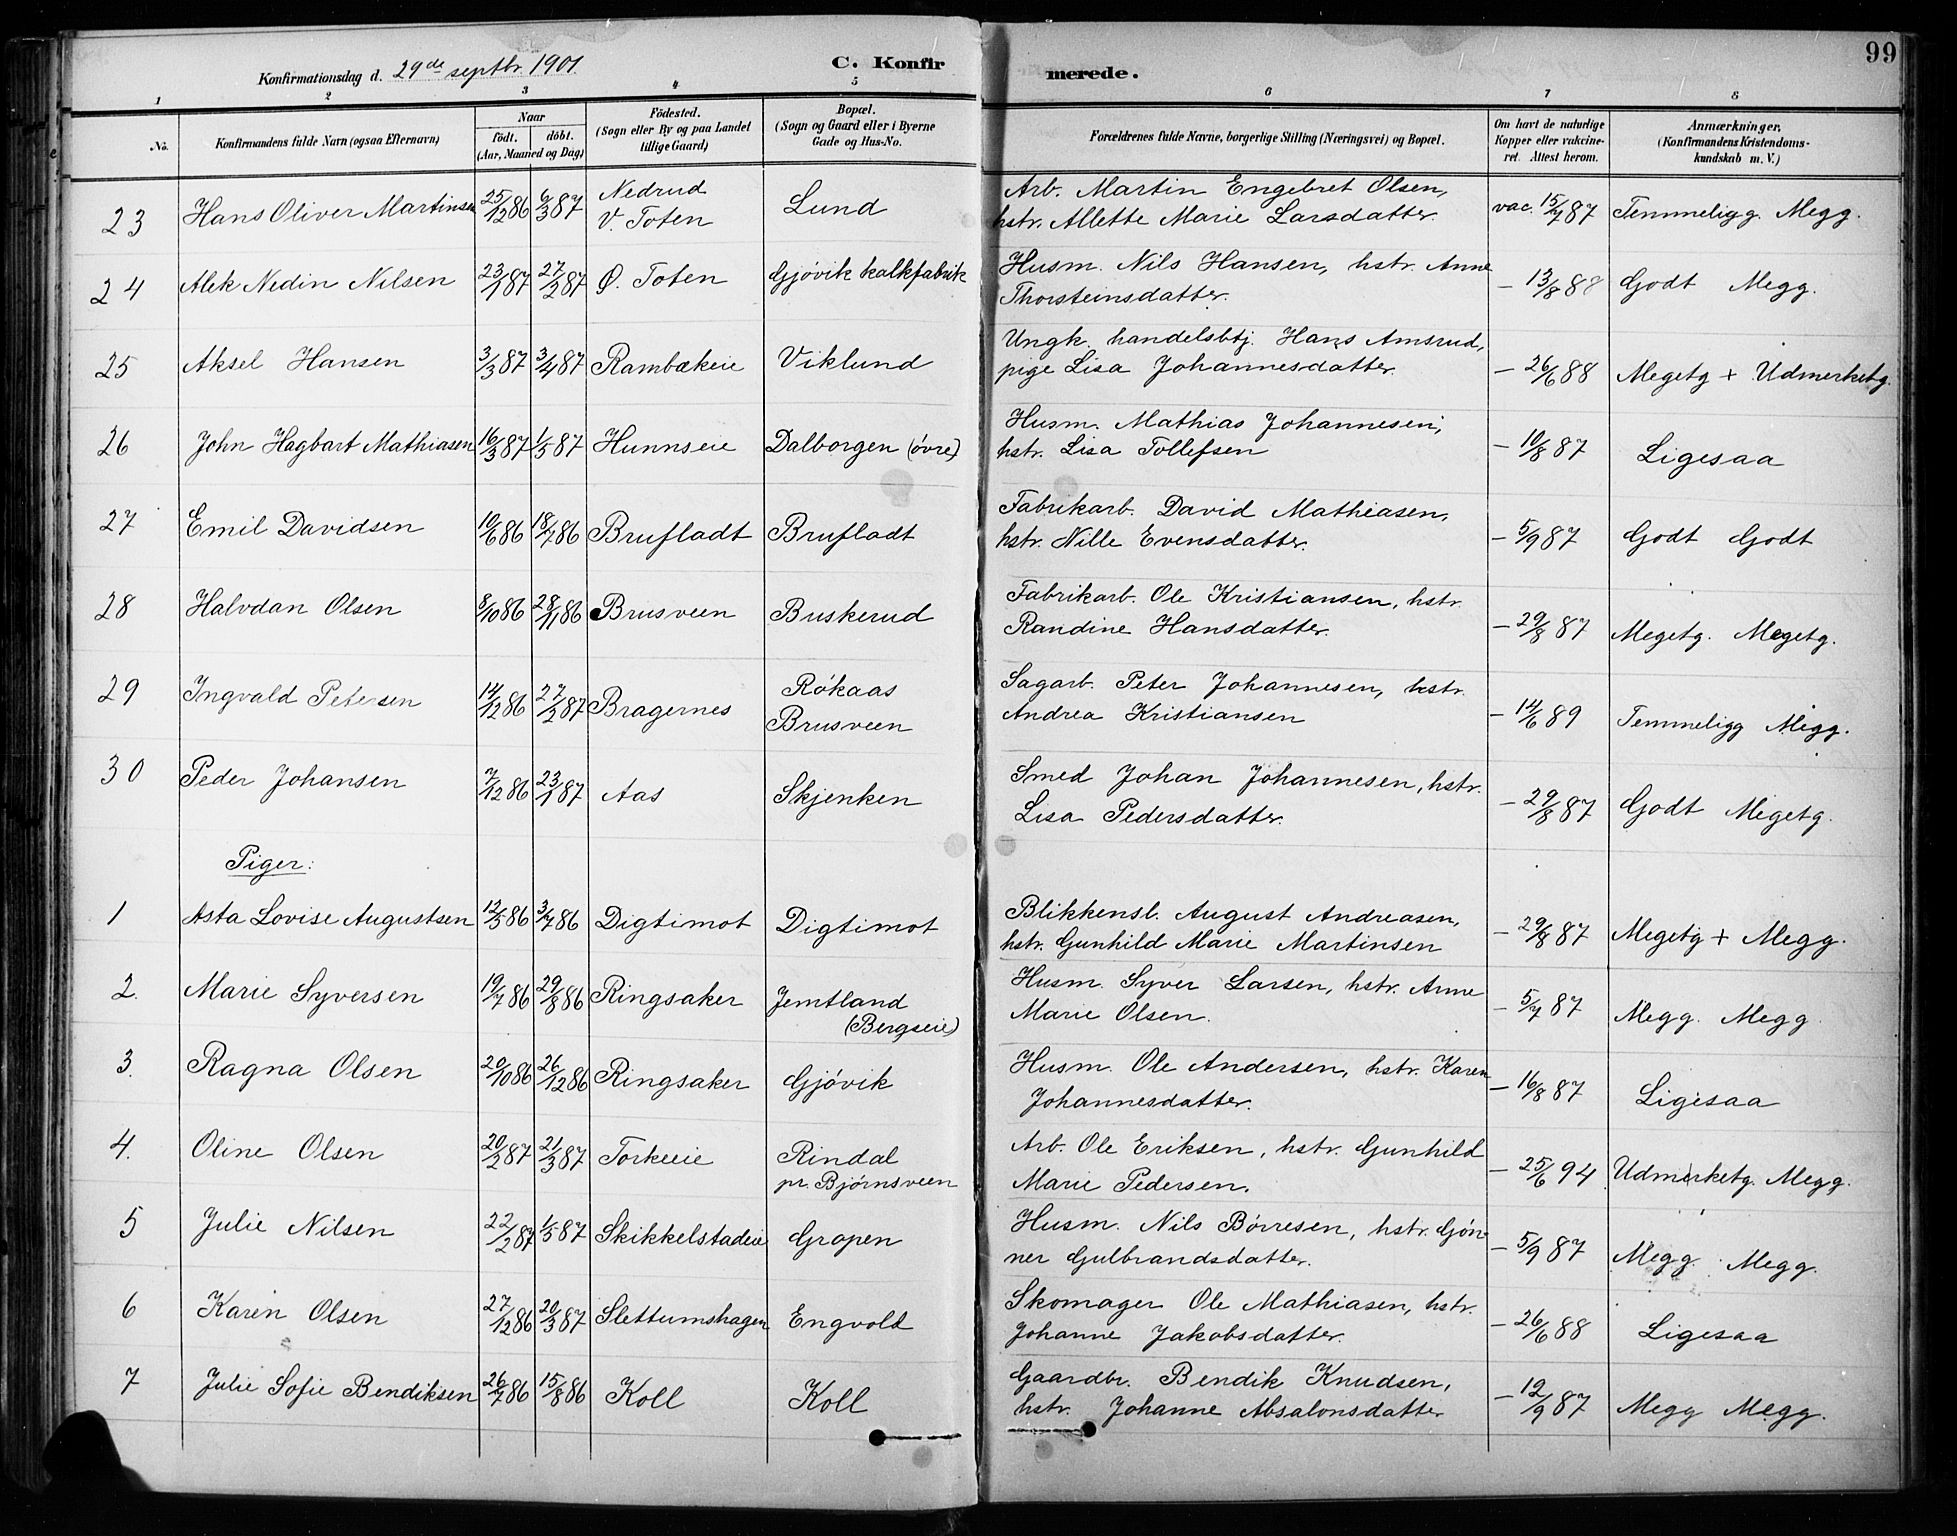 99
Konfirmationsdag d. 29de septbr. 1901.
C. Konfirmerede.
1 2 3 4 5 6 7 8
No. | Konfirmandens fulde Navn (ogsaa Efternavn) | Naar født. døbt. (Aar, Maaned og Dag) | Fødested. (Sogn eller By og paa Landet tillige Gaard) | Bopæl. (Sogn og Gaard eller i Byerne Gade og Hus-No. | Forældrenes fulde Navne, borgerlige Stilling (Næringsvei) og Bopæl. | Om havt de naturlige Kopper eller vakcineret. Attest herom. | Anmærkninger, (Konfirmandens Kristendomskundskab m. V.)
23 | Hans Oliver Martinsen | 25/12 86 | 6/3 87 | Nedrud V. Toten | Lund | Arb. Martin Engebret Olsen, hstr. Allette Marie Larsdatter. | vac. 15/7 87 | Temmeligg. Megg.
24 | Alek Nedin Nilsen | 23/1 87 | 27/2 87 | Ø. Toten | Gjøvik kalkfabrik | Husm. Nils Hansen, hstr. Anne Thorsteinsdatter. | – 13/8 88 | Godt Megg.
25 | Aksel Hansen | 3/3 87 | 3/4 87 | Rambækeie | Viklund | Ungk. handelsbtj. Hans Amsrud, pige Lisa Johannesdatter. | – 26/6 88 | Megetg + Udmerketg.
26 | John Hagbart Mathiasen | 16/3 87 | 1/5 87 | Hunnseie | Dalborgen (øvre) | Husm. Mathias Johannesen, hstr. Lisa Tollefsen | – 10/8 87 | Ligesaa
27 | Emil Davidsen | 10/6 86 | 18/7 86 | Brufladt | Brufladt | Fabrikarb. David Mathiasen, hstr. Nille Evensdatter. | – 5/9 87 | Godt Godt
28 | Halvdan Olsen | 8/10 86 | 28/11 86 | Brusveen | Buskerud | Fabrikarb. Ole Kristiansen, hstr. Randine Hansdatter. | – 29/8 87 | Megetg. Megetg.
29 | Ingvald Petersen | 14/12 86 | 27/2 87 | Bragernes | Røkaas Brusveen | Sagarb. Peter Johannesen, hstr. Andrea Kristiansen | – 14/6 89 | Temmeligg Megg.
30 | Peder Johansen | 7/12 86 | 23/1 87 | Aas | Skjenken | Smed Johan Johannesen, hstr. Lisa Pedersdatter. | – 29/8 87 | Godt Megetg.
Piger:
1 | Asta Lovise Augustsen | 12/5 86 | 3/7 86 | Digtimot | Digtimot | Blikkensl. August Andreasen, hstr. Gunhild Marie Martinsen | – 29/8 87 | Megetg + Megg.
2. | Marie Syversen | 19/7 86 | 29/8 86 | Ringsaker | Jemtland (Bergseie) | Husm. Syver Larsen, hstr. Anne Marie Olsen. | – 5/7 87 | Megg. Megg.
3. | Ragna Olsen | 20/10 86 | 26/12 86 | Ringsaker | Gjøvik | Husm. Ole Andersen, hstr. Karen Johannesdatter. | – 16/8 87 | Ligesaa
4. | Oline Olsen | 20/2 87 | 21/3 87 | Torkeeie | Rindal pr. Bjørnsveen | Arb. Ole Eriksen, hstr. Gunhild Marie Pedersen. | – 25/6 94 | Udmerketg. Megg.
5 | Julie Nilsen | 22/2 87 | 1/5 87 | Skikkelstadeie | Gropen | Husm. Nils Børresen, hstr. Gønner Gulbrandsdatter. | – 5/9 87 | Megg. Megg.
6 | Karen Olsen | 27/12 86 | 20/3 87 | Slettumshagen | Engvold | Skomager Ole Mathiasen, hstr. Johanne Jakobsdatter. | – 26/6 88 | Ligesaa
7 | Julie Sofie Bendiksen | 26/7 86 | 15/8 86 | Koll | Koll | Gaardbr. Bendik Knudsen, hstr. Johanne Absalonsdatter | – 12/9 87 | Megg Megg.